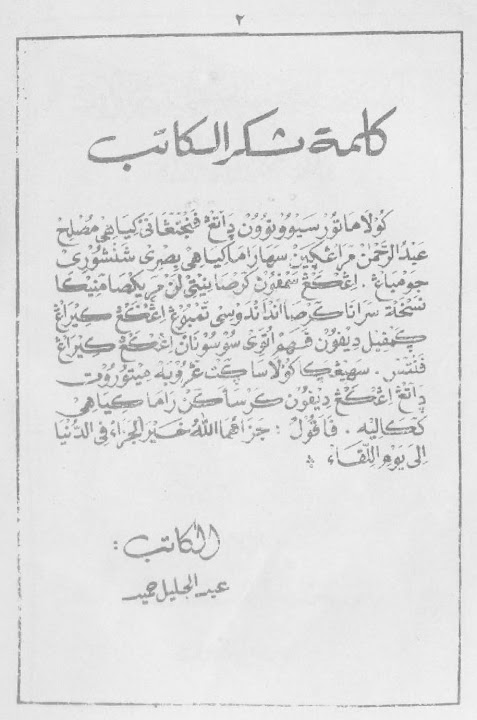 ٢
كلمة شكر الكاتب
كَوْلَا مَاتُوْر سَيَوُوْ نُوْوُوْن دَاتَڠْ فَنْجَنَڠَانَيْ كِيَاهِيْ مُصْلِحْ
عَبْدُ الرَّحْمٰنْ مْرَاڠْكَيْن سَهَا رَامَا كِيَاهِيْ بِصْرِيْ شَنْشُوْرِيْ
جَوْمْبَاڠْ. اِڠْكَڠْ سَمْفُوْن كَرْصَا نِيْتِيْ لَنْ مْرِيْكْصَا مَنِيْكَا
نُسْخَةْ سَرَانَا كَرْصَا اَنْدَانْدَوْسِيْ تَمْبُوْڠْ اِڠْكَڠْ كِيْرَاڠْ
ڮَمْفِيْل دِيْفُوْن فَهَمْ اُتَوِيْ سُوْسُوْنَانْ اِڠْكَڠْ كِيْرَاڠْ
فَنْتَسْ. سَهِيْڠْڮَا كَوْلَا ساڮَتْ عَرُوْبَهْ مِيْتُوْرُوْت
دَاتَڠْ اِڠْكَڠْ دِيْفُوْن كَرْسَاكَنْ رَامَا كِيَاهِيْ
كَكَالِيْه. فَاَقُوْلُ : جَزَاهُمَا اللهُ خَيْرَ الْجَزَاءِ فِى الدُّنْيَا
اِلَى يَوْمِ اللِّقَاءِ
الكاتب :
عبد الجليل حميد